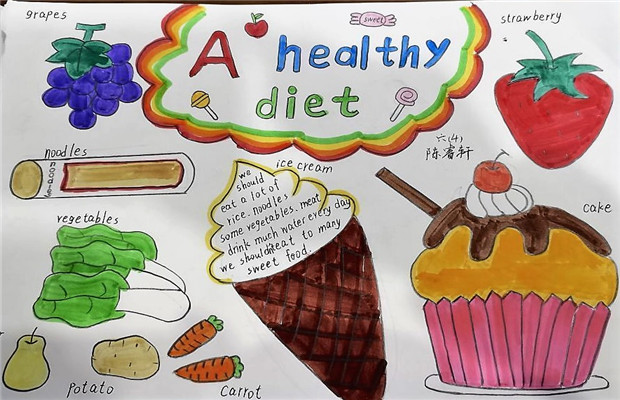 grapes
A healthy
diet
sweet
strawberry
六(4)
陈睿轩
noodles
noodles
ice cream
we
should
eat a lot of
rice. noodles
some vegetables. meat
drink much water every day
we shouldn't eat to many
sweet food.
vegetables
cake
potato
Carrot